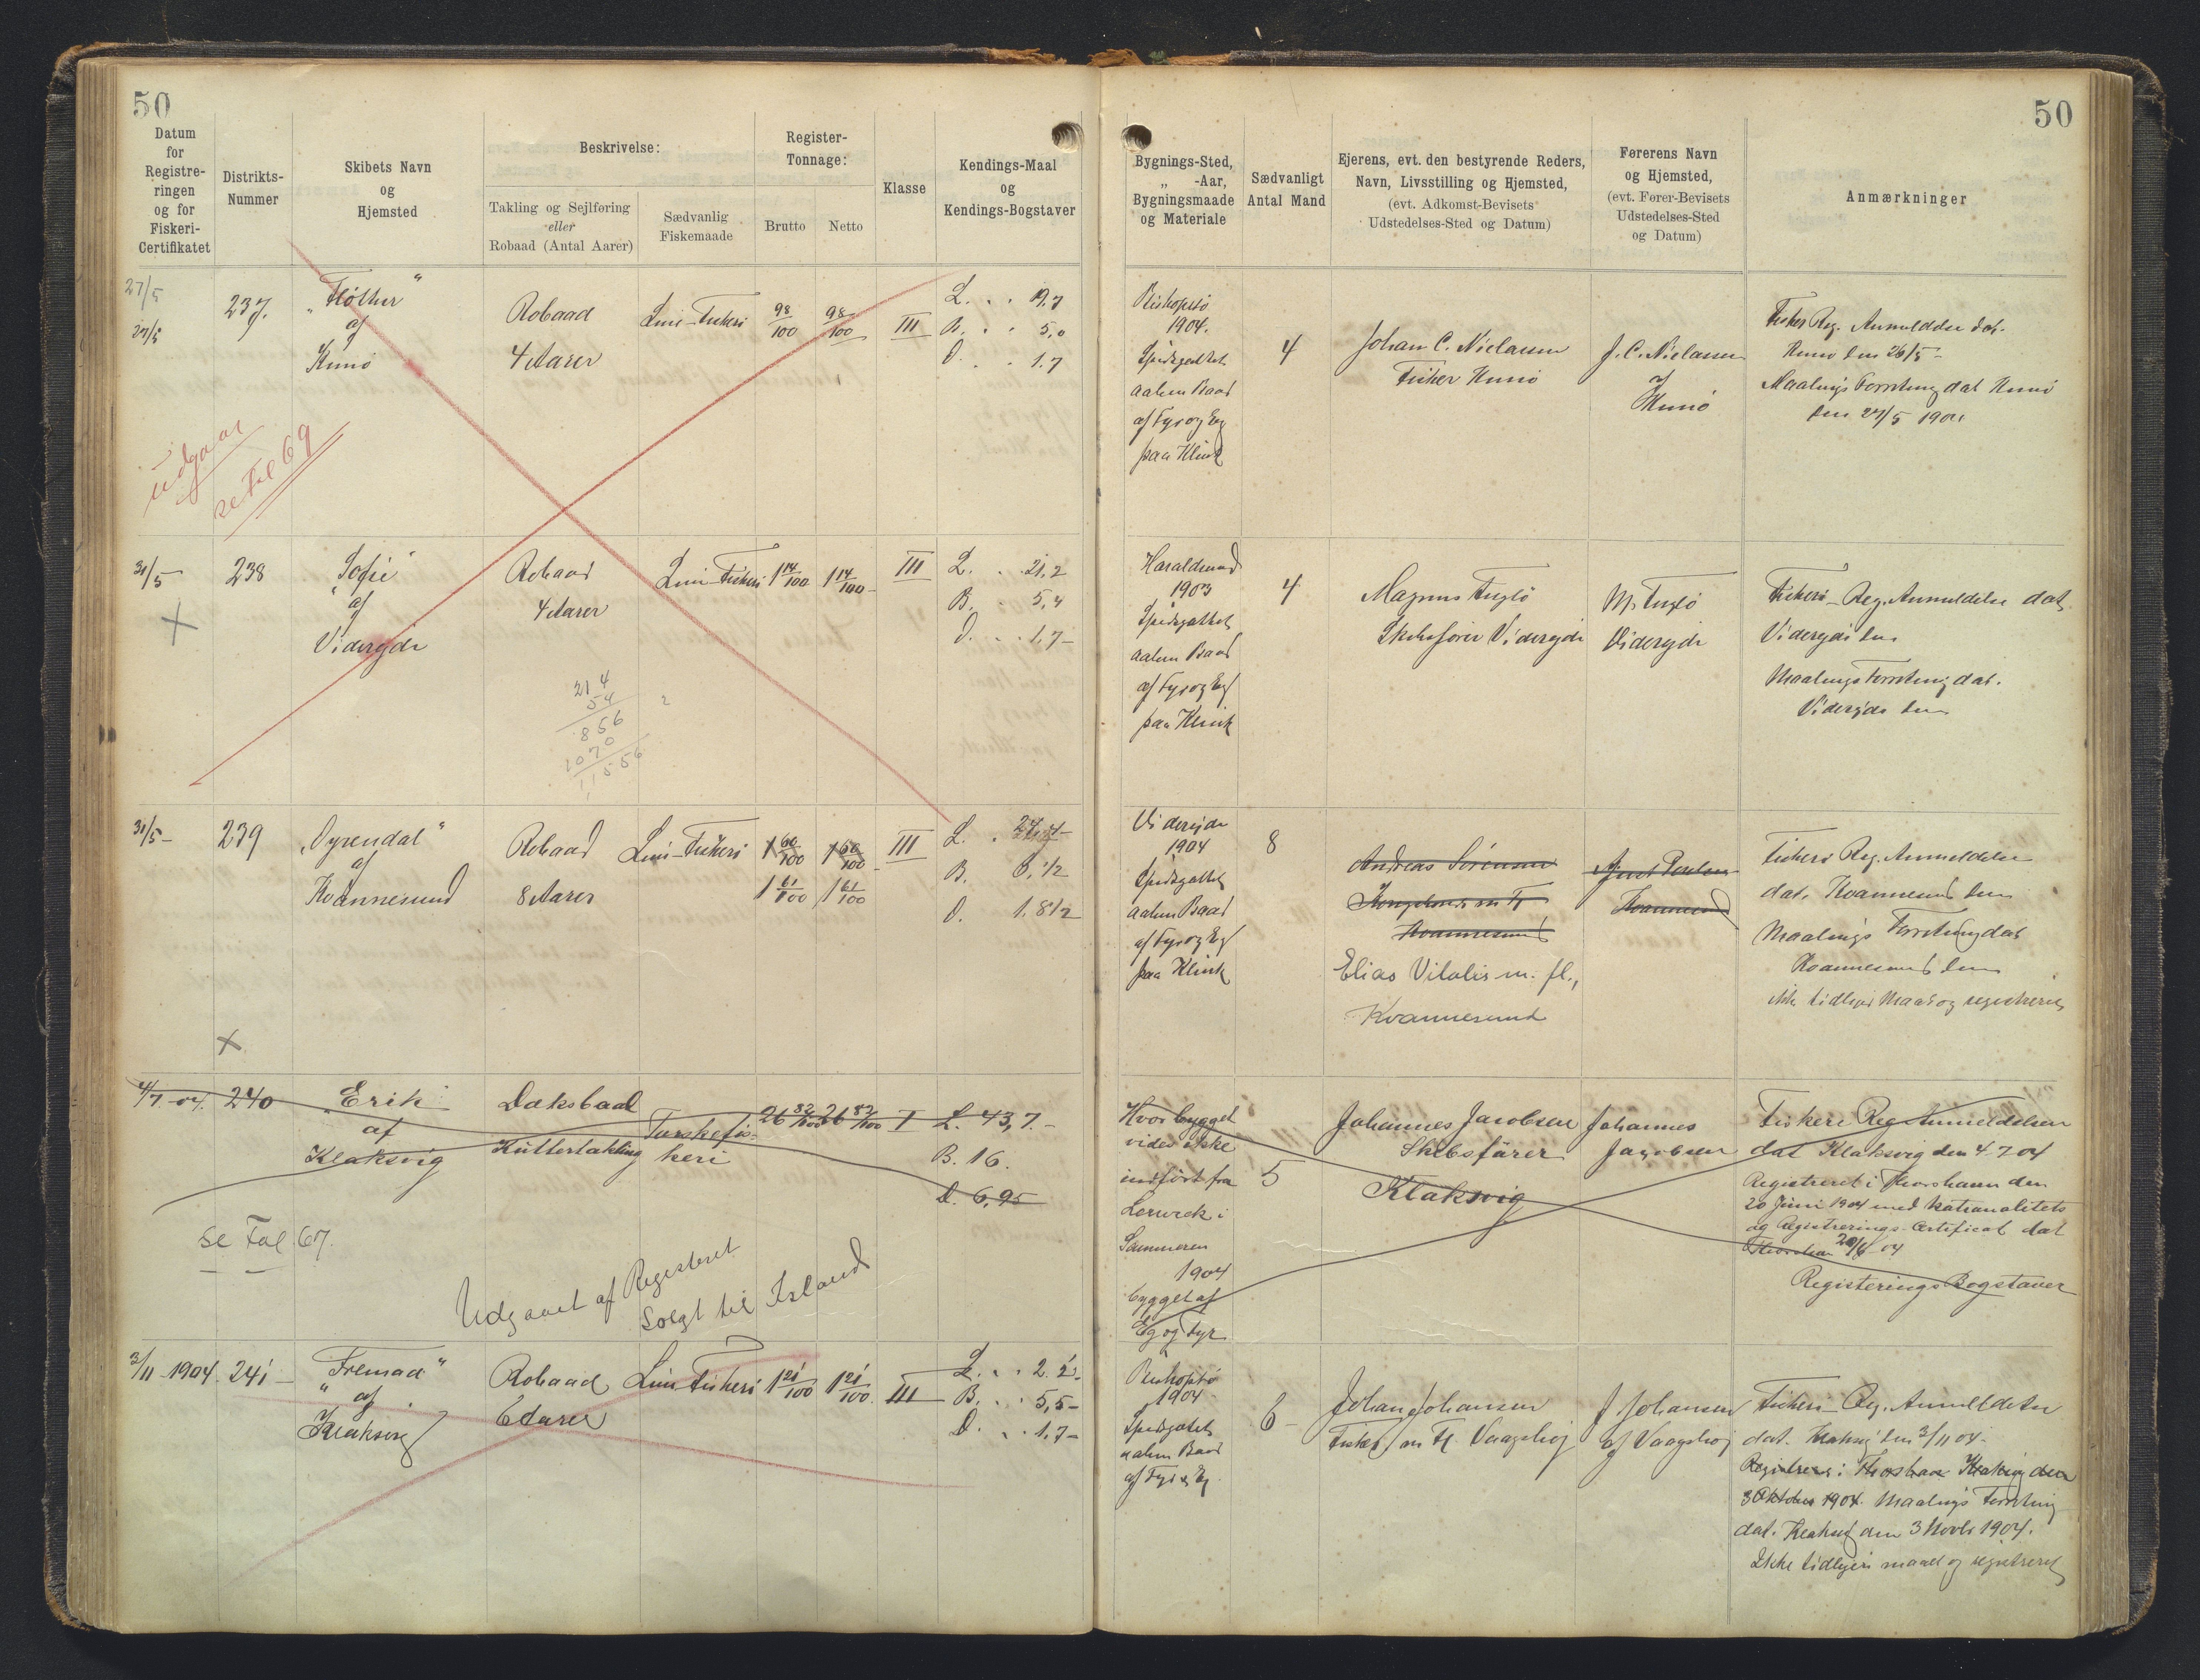 50
50
Datum
for
Registre-
ringen
og for
Fiskeri-
Certifikatet
Distrikts-
Nummer
Skibets Navn
og
Hjemsted
Beskrivelse:
Takling og Sejlføring
eller
Robaad (Antal Aarer)
Sædvanlig
Fiskemaade
Register-
Tonnage:
Brutto
Netto
Klasse
Kendings-Maal
og
Kendings-Bogstaver
Bygnings-Sted,
„ -Aar,
Bygningsmaade
og Materiale
Sædvanligt
Antal Mand
Ejerens, evt. den bestyrende Reders,
Navn, Livsstilling og Hjemsted,
(evt. Adkomst-Bevisets
Udstedelses-Sted og Datum)
Førerens Navn
og Hjemsted,
(evt. Fører-Bevisets
Udstedelses-Sted
og Datum)
Anmærkninger
27/5
27/5
237.
af
Kunø
Robaad
4 Aarer
Line-Fiskeri
98/100
98/100
III
L. . . 19.7
B. . . 5,0
D. . . 1.7
1904.
Spidsgattet
aaben Baad
af Fyr og Eg
paa Klink
4
Johan C. Nielsen
Fisker Kunø
J. C. Nielsen
af
Kunø
Fisker Reg. Anmeldelse dat.
Kunø den 26/5 -
Maalings Forretning dat Kunø
den 27/5 1904
udgaar
se Fol 69
31/5
238
"Sofie"
af
Viderejde
Robaad
4 Aarer
Line-Fiskeri
1 14/100
1 14/100
III
L. . . 21,2
B. . 5,4
D. . . 1,7-
Haraldsund
1903
Spidsgattet
aaben Baad
af Fyr og Eg
paa Klink
4
Magnus Fuglø
Skibsfører Viderejde
M. Fuglø
Viderejde
Fiskeri-Reg. Anmeldelse dat.
Viderejde den
Maalings Forretning dat.
Viderejde den
214
54
856
1070
11556
31/5-
239
af
Kvannesund
Robaad
8 Aarer
Line-Fiskeri
1 60/100
1 60/100
1 61/100
1 61/100
III
L.
B. 6.1/2
D. 1.81/2
Viderejde
1904
Spidsgattet
aaben Baad
af Fyr og Eg
paa Klink
8
Andreas Sörensen
Kvannesund
Elias Vitalis m. fl.,
Kvannesund
Kvannesund
Fiskeri Reg. Anmeldelse
dat. Kvannesund den
Maalings Forretning dat
Kvannesund den
ikke tidligere Maalt og registreret
4/7-04.
240
"Erik"
af
Klaksvig
Dæksbaad
Kuttertakling
Torskefis-
keri
26 82/100
26 82/100
I
L. 43,7.-
B. 16.
D. 6,95
Hvor bygget
vides ikke
indført fra
Lerwick i
Sommeren
1904
bygget af
Eg og Fyr
5
Johannes Jacobsen
Skibsfører
Klaksvig
Johannes
Jacobsen
Fiskeri Reg. Anmeldelsen
dat Klaksvig den 4-7 04
Registreret i Thorshavn den
20 Juni 1904 med Nationalitets
og Registrerings-Certificat dat
Thorshavn 20/6 04
Registerings Bogstaver
se Fol 67.
Udgaaet af Registeret
Solgt til Island
3/11 1904
241
"Fremad"
af
Klaksvig
Robaad
6 Aarer
Line-Fiskeri
1 21/100
1 21/100
III
B. . . 5,5-
D. . . 1.7-
1904-
Spidsgattet
aaben Baad
af Fyr & Eg.
6
Johan Johansen
J Johansen
Fiskeri-Reg. Anmeldelse
dat. Klaksvig den 3/11 04.
Registreret i Thorshavn Klaksvig den
3 Oktober 1904. Maalings Forretning
dat. Klaksvig den 3 Novbr 1904.
Ikke tidligere maalt og registreret